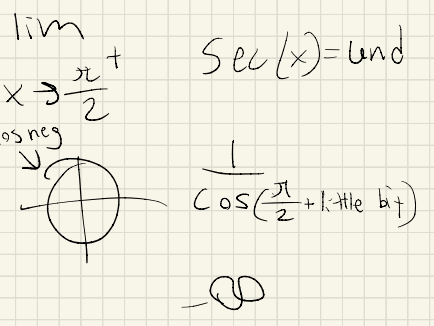 lim x→π/2⁺ sec(x)=und
os neg
1/cos(π/2+little bit)
-∞